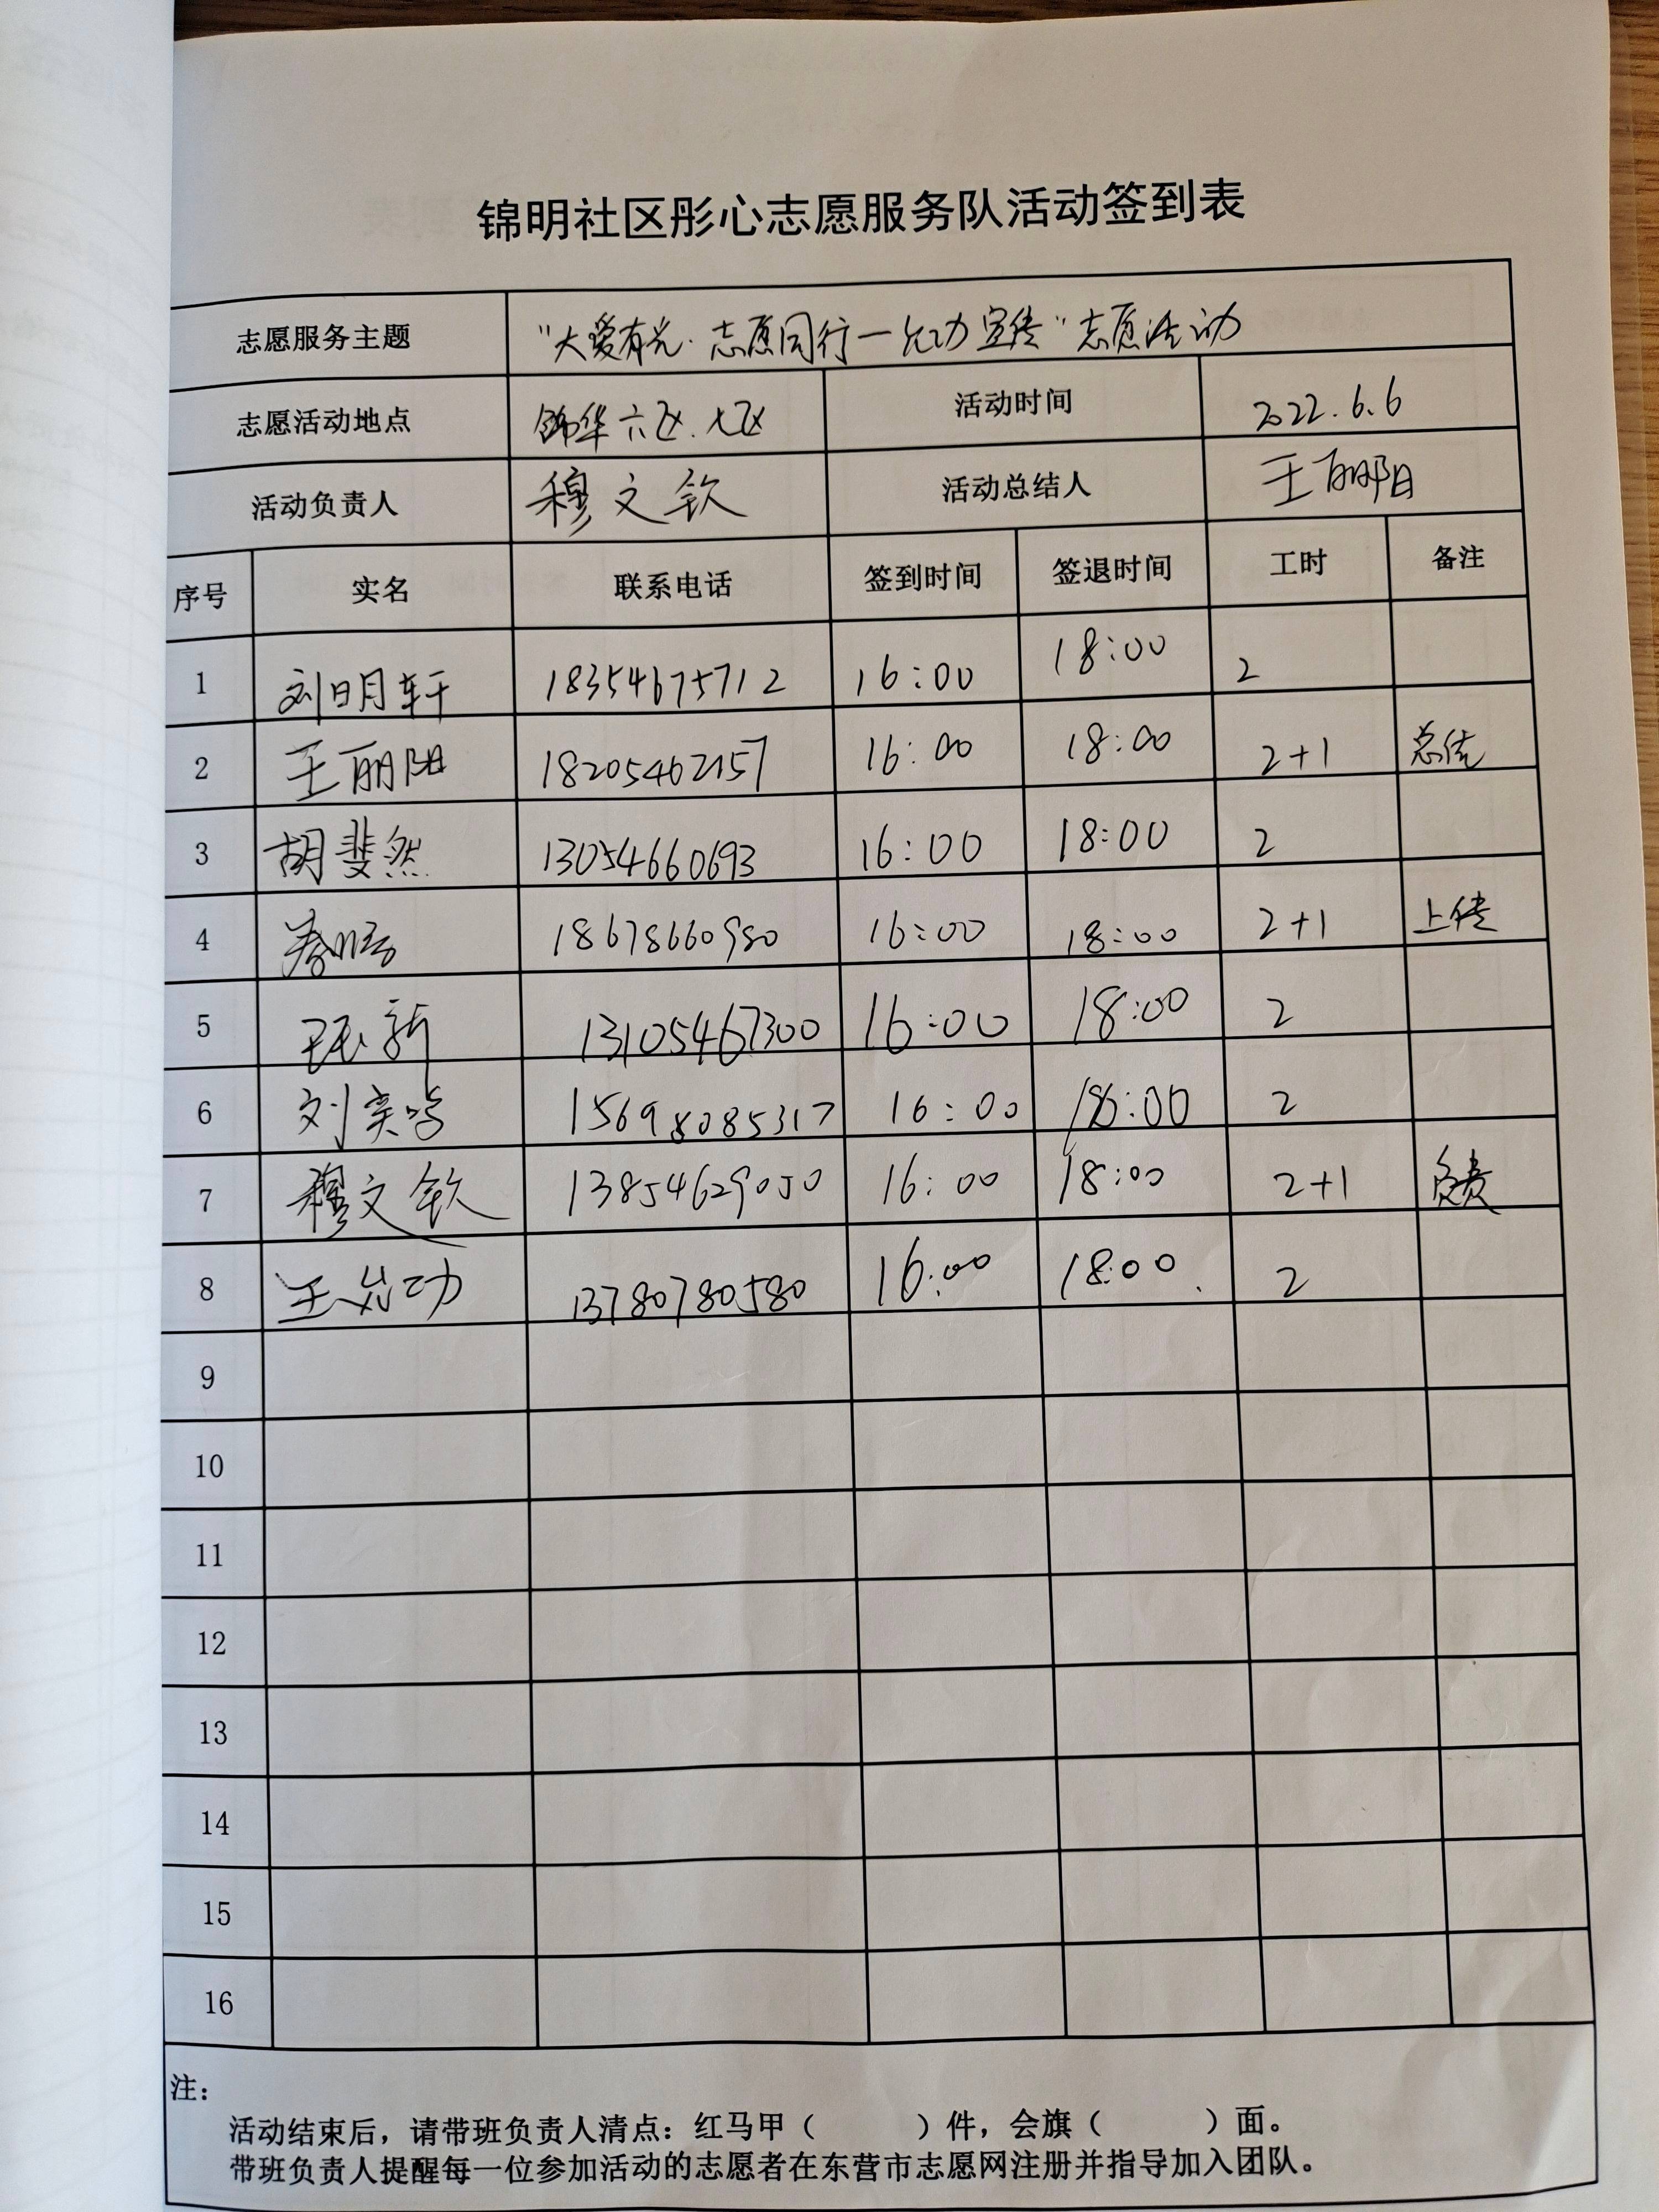 锦明社区彤心志愿服务队活动签到表
志愿服务主题 "大爱有光·志愿同行一 宣传"志愿活动
志愿活动地点 锦华六区.七区 活动时间 2022.6.6
活动负责人 穆文钦 活动总结人 王丽阳
序号 实名 联系电话 签到时间 签退时间 工时 备注
1 刘明轩 18354675712 16:00 18:00 2
2 王丽阳 18205462157 16:00 18:00 2+1 总结
3 胡斐然 13054660693 16:00 18:00 2
4 18678660980 16:00 18:00 2+1 上传
5 新 13105467300 16:00 18:00 2
6 刘 15698085317 16:00 18:00 2
7 穆文钦 13854629050 16:00 18:00 2+1 负责
8 王 功 13780780580 16:00 18:00 2
9
10
11
12
13
14
15
16
注:
活动结束后，请带班负责人清点：红马甲（ ）件，会旗（ ）面。
带班负责人提醒每一位参加活动的志愿者在东营市志愿网注册并指导加入团队。